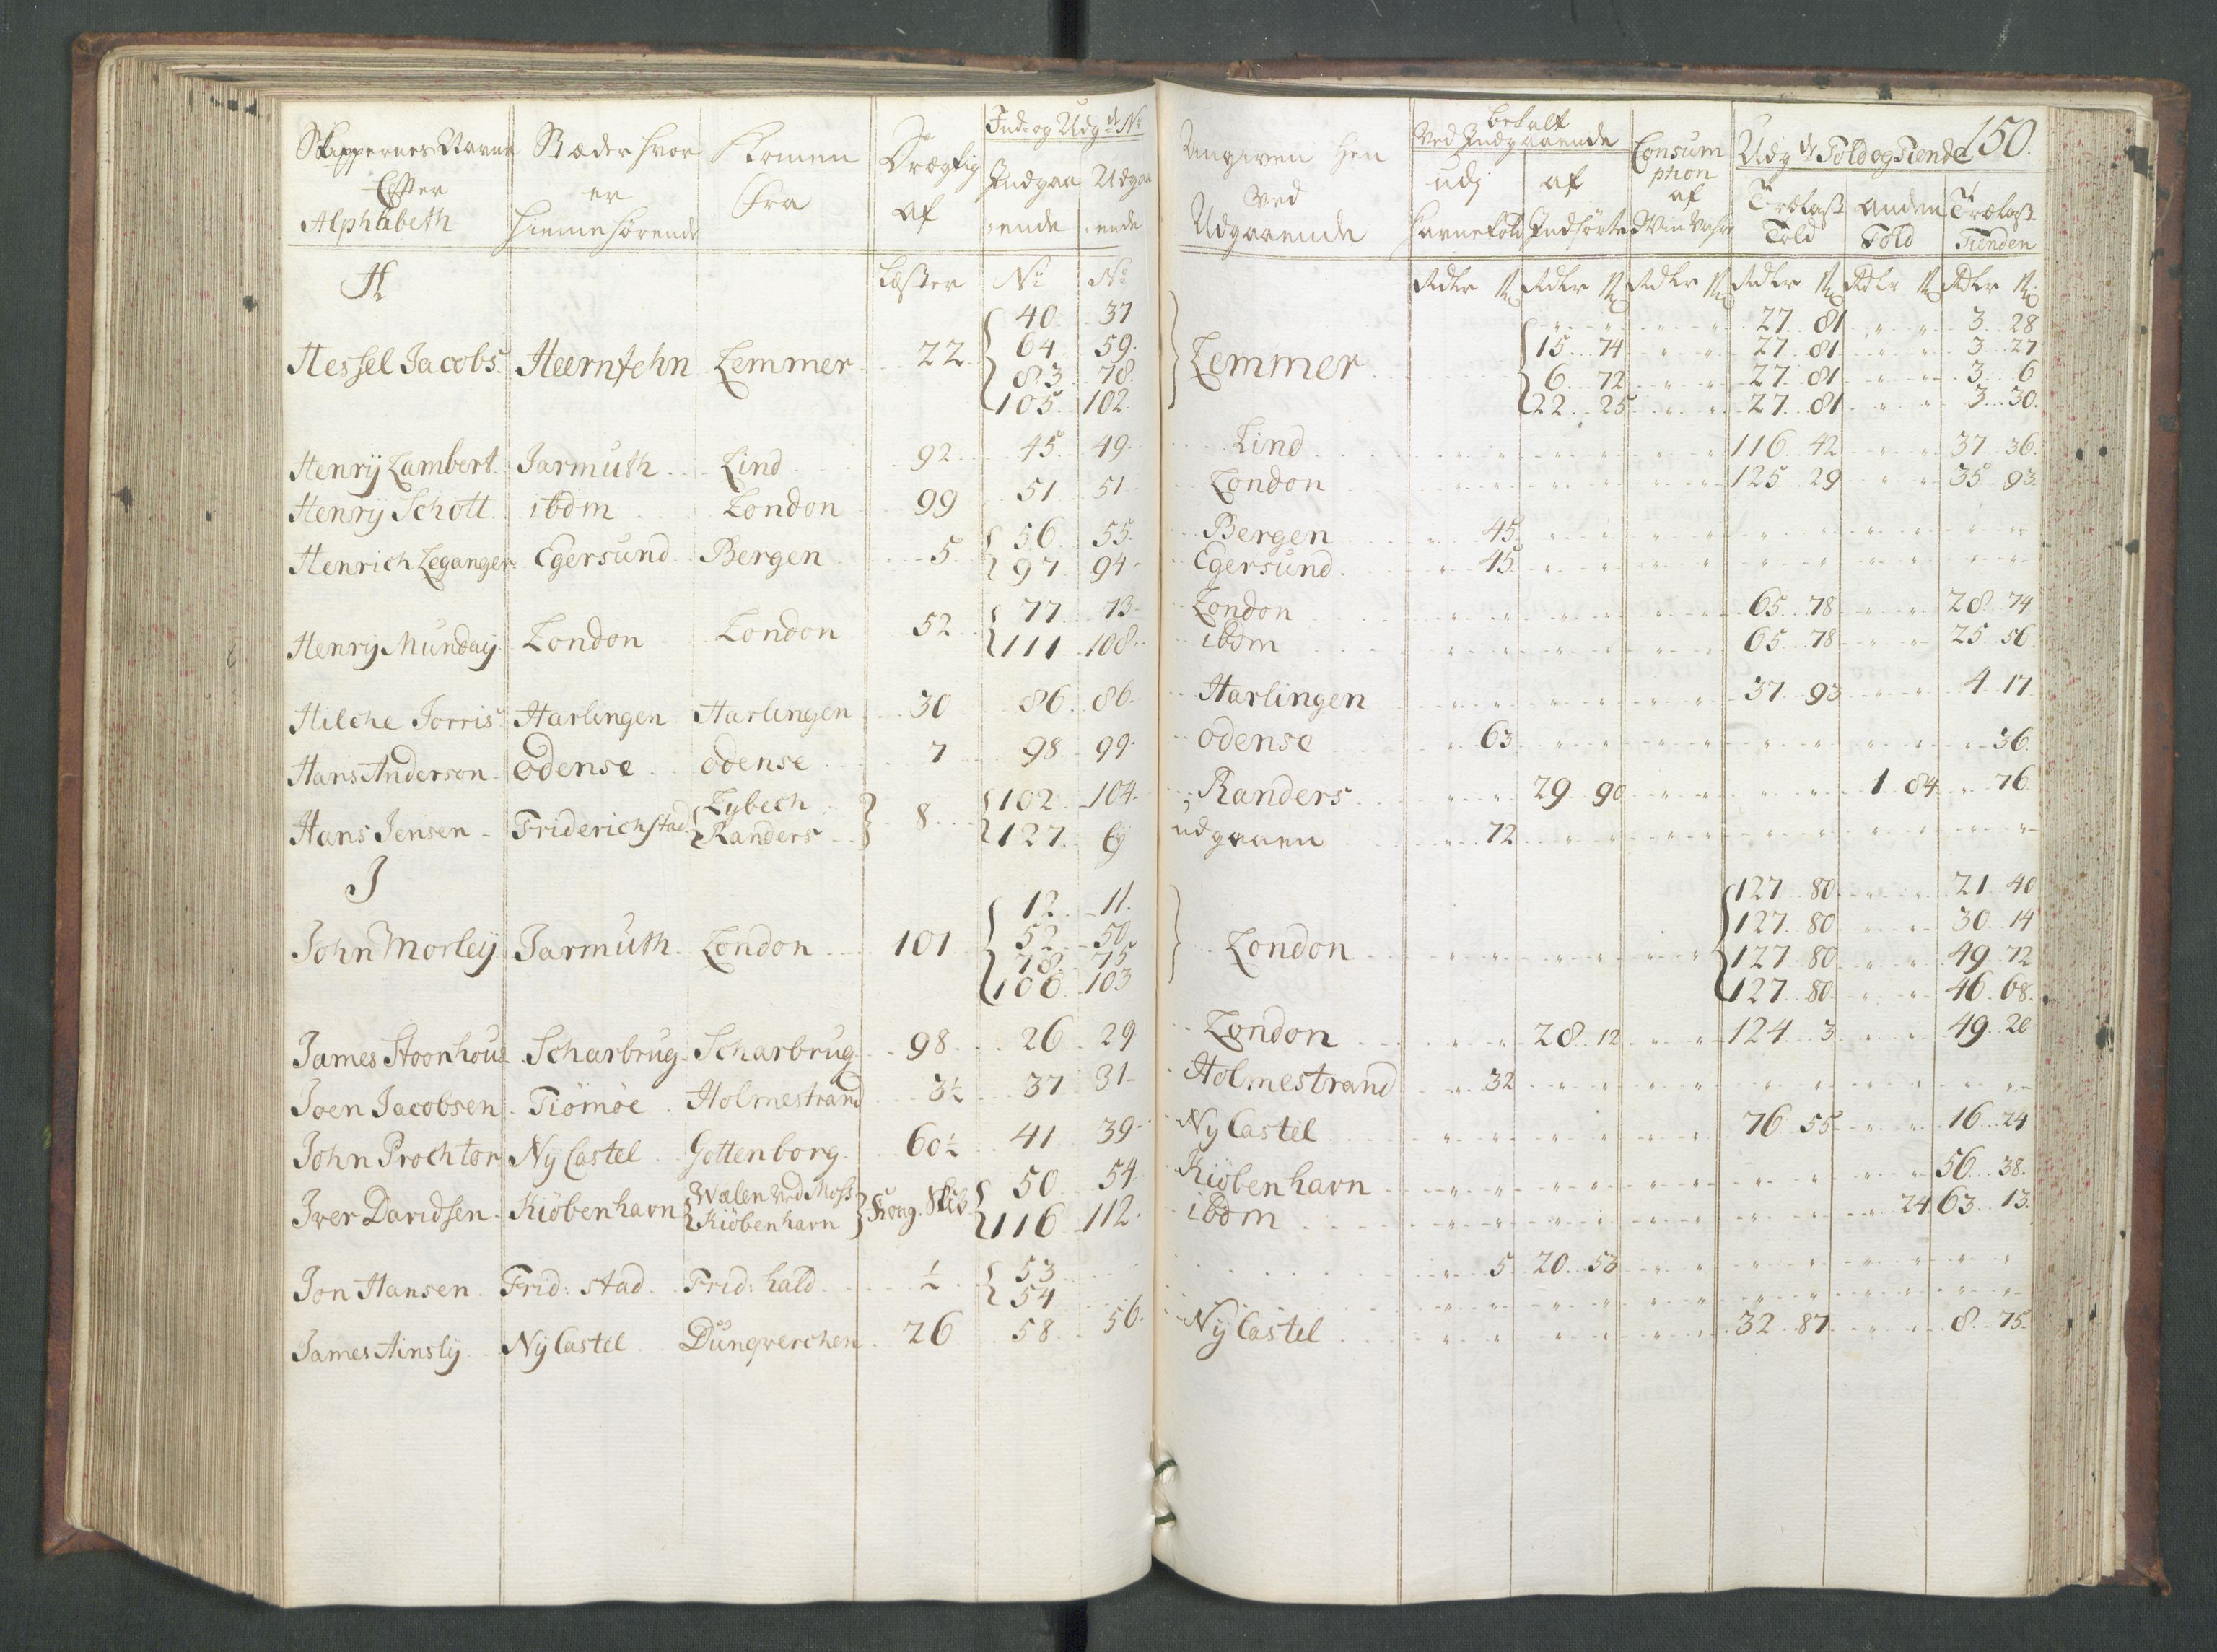 Skippernes Navne Stæder hvor Kommen Drægtig Ind- og Udg:de No
Efter er fra af Indgaa Udgaa
Alphabeth hiemmehørende :ende :ende
H Læster No No
40 37
64 59
Hessel Jacobs Heernfehn Lemmer 22 83 78
105 102
Henrÿ Lambert Jarmuth Lind 92 45 49
Henrÿ Schott ibdm London 99 51 51
Henrich Leganger Egersund Bergen 5 56 55
97 94
Henrÿ Munday London London 52 77 73
111 108
Hilche Jorris Harlingen Harlingen 30 86 86
Hans Anderson Odense odense 7 98 99
Hans Jensen Friderichstad Lybech 8 102 104
Randers 127 Ej
J
12 11
52 50
John Morleÿ Jarmuth London 101 78 75
106 103
James Stoonhous Scharbrug Scharbrug 98 26 29
Joen Jacobsen Tiömöe Holmestrand 3½ 37 31
John Prochtor Nÿ Castel Gottenborg 60½ 41 39
Iver Davidsen Kiöbenhavn Walen ved Moss Kong. Skib 50 54
Kiöbenhavn 116 112
Jon Hansen Frid: stad Frid: hald ½ 53
54
James Ainsly Nÿ Castel Dunqverchen 26 58 56
150.
Angiven hen betalt Consum Udg:de Told og Tiende
Ved Indgaaende ption
ved udj af af Trælast anden Trælast
Udgaaende havnetold Indførte Told Told Tienden
Rdlr ß Rdlr ß Rdlr ß Rdlr ß Rdlr ß Rdlr ß
27 81 3 28
15 74 27 81 3 27
Lemmer 6 72 27 81 3 6
22 25 27 81 3 30
Lind 116 42 37 36
London 125 29 35 93
Bergen 45
Egersund 45
London 65 78 28 74
ibdm 65 78 25 56
Harlingen 37 93 4 17
odense 63 36
Randers 29 90 1 84 76
udgaaen 72
127 80 21 40
127 80 30 14
London 127 80 49 72
127 80 46 68
London 28 12 124 3 49 20
Holmestrand 32
Nÿ Castel 76 55 16 24
Kiöbenhavn 56 38
ibdm 24 63 13
5 20 53
Nÿ Castel 32 87 8 75